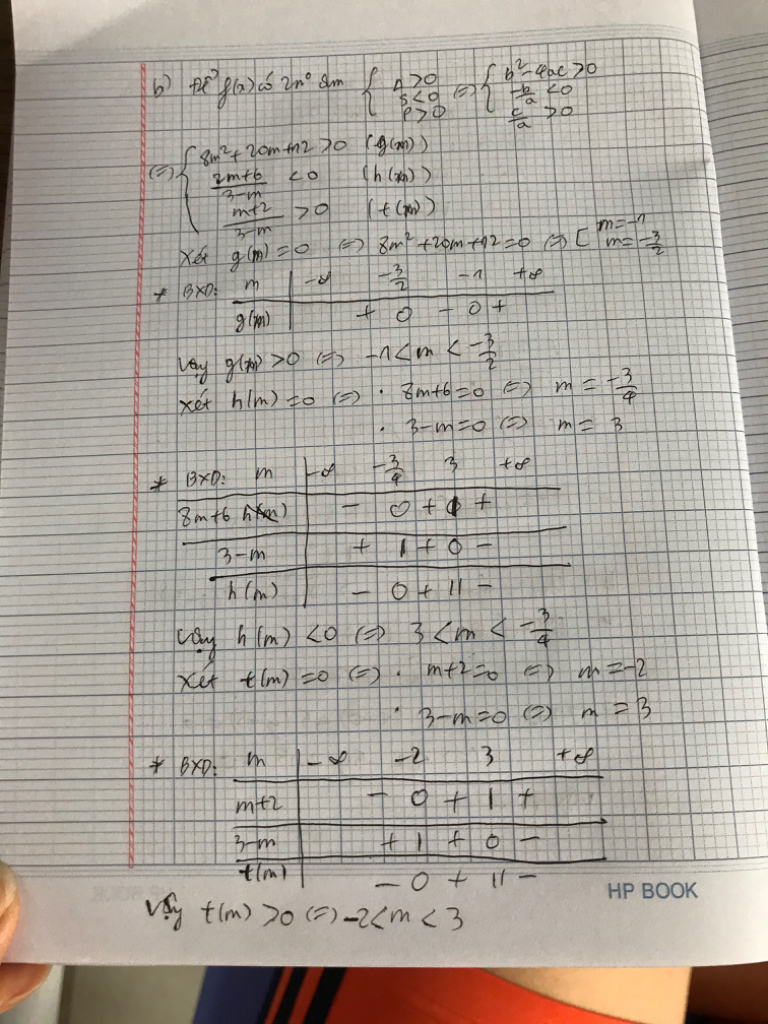 b) Để f(x) có 2n⁰ âm { Δ>0 S<0 P>0 (=) { b²-4ac>0 -b/a <0 c/a >0
(=) { 8m²+20m+12>0 (g(m))
2m+6/3-m <0 (h(m))
m+2/3-m >0 (t(m))
Xét g(m)=0 (=) 8m²+20m+12=0 (=) [ m=-1 m=-3/2
* BXD: m | -∞ -3/2 -1 +∞
g(m) | + 0 - 0 +
Vậy g(m)>0 (=) -1<m<-3/2
Xét h(m)=0 (=) · 8m+6=0 (=) m = -3/4
· 3-m=0 (=) m = 3
* BXD: m | -∞ -3/4 3 +∞
8m+6 | - 0 + | +
3-m | + | + 0 -
h(m) | - 0 + || -
Vậy h(m) <0 (=) 3<m<-3/4
Xét t(m)=0 (=) · m+2=0 (=) m=-2
· 3-m=0 (=) m = 3
* BXD: m | -∞ -2 3 +∞
m+2 | - 0 + | +
3-m | + | + 0 -
t(m) | - 0 + || -
HP BOOK
Vậy t(m) >0 (=) -2<m<3